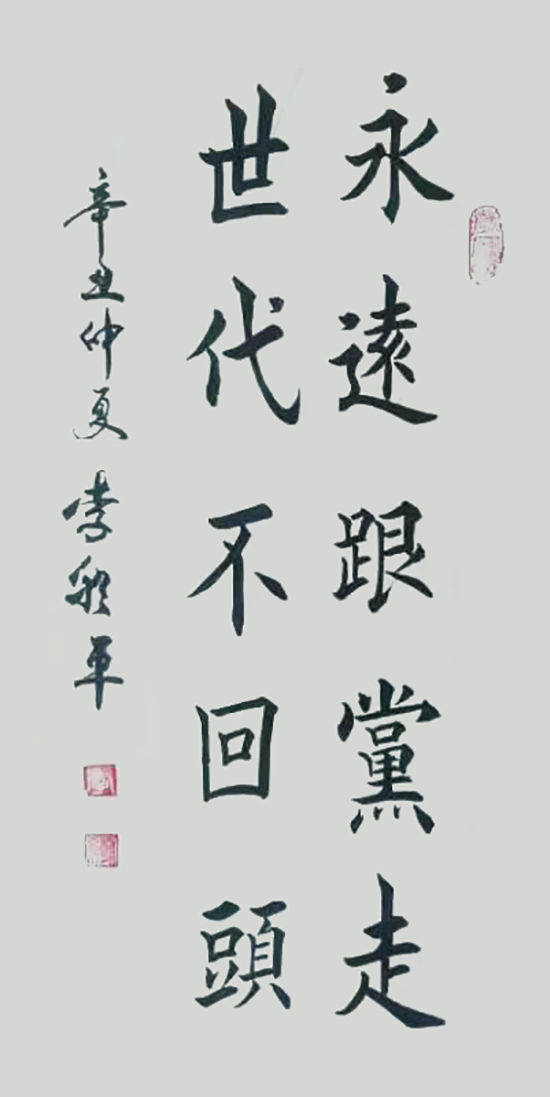 永遠跟黨走
世代不回頭
辛丑仲夏 李 軍